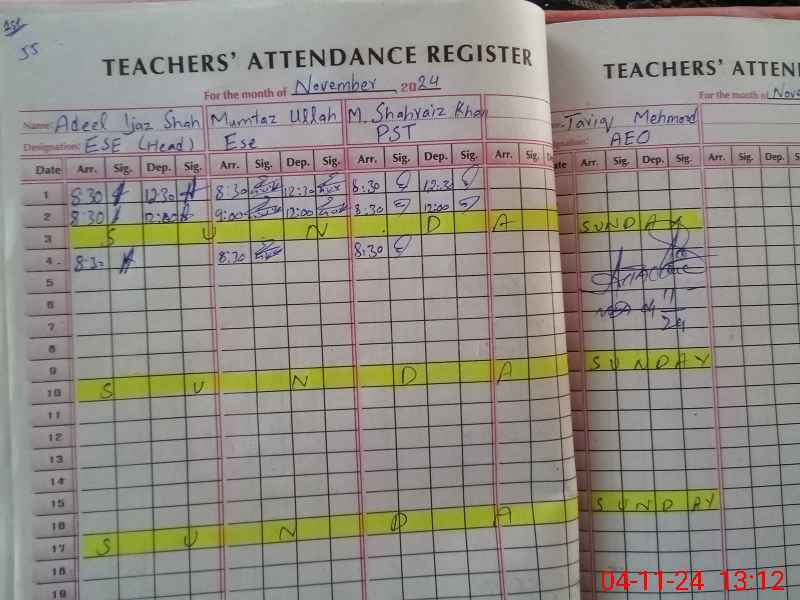 1st
55
TEACHERS' ATTENDANCE REGISTER
For the month of November 2024
Name: Adeel Ijaz Shah Mumtaz Ullah M. Shahvaiz Khan
Designation: ESE (Head) Ese PST
Date Arr. Sig. Dep. Sig. Arr. Sig. Dep. Sig. Arr. Sig. Dep. Sig. Arr. Sig.
1 8:30 12:30 8:30 12:30 8:30 12:30
2 8:30 12:00 9:00 12:00 8:30 12:00
3 S U N D A
4 8:30 8:30 8:30
5
6
7
8
9
10 S U N D A
11
12
13
14
15
16
17 S U N D A
18
19
TEACHERS' ATTEN
For the month of Nove
Tariq Mehmood
AEO
Arr. Sig. Dep. Sig. Arr. Sig. Dep.
SUNDAY
11
24
SUNDAY
SUNDAY
04-11-24 13:12